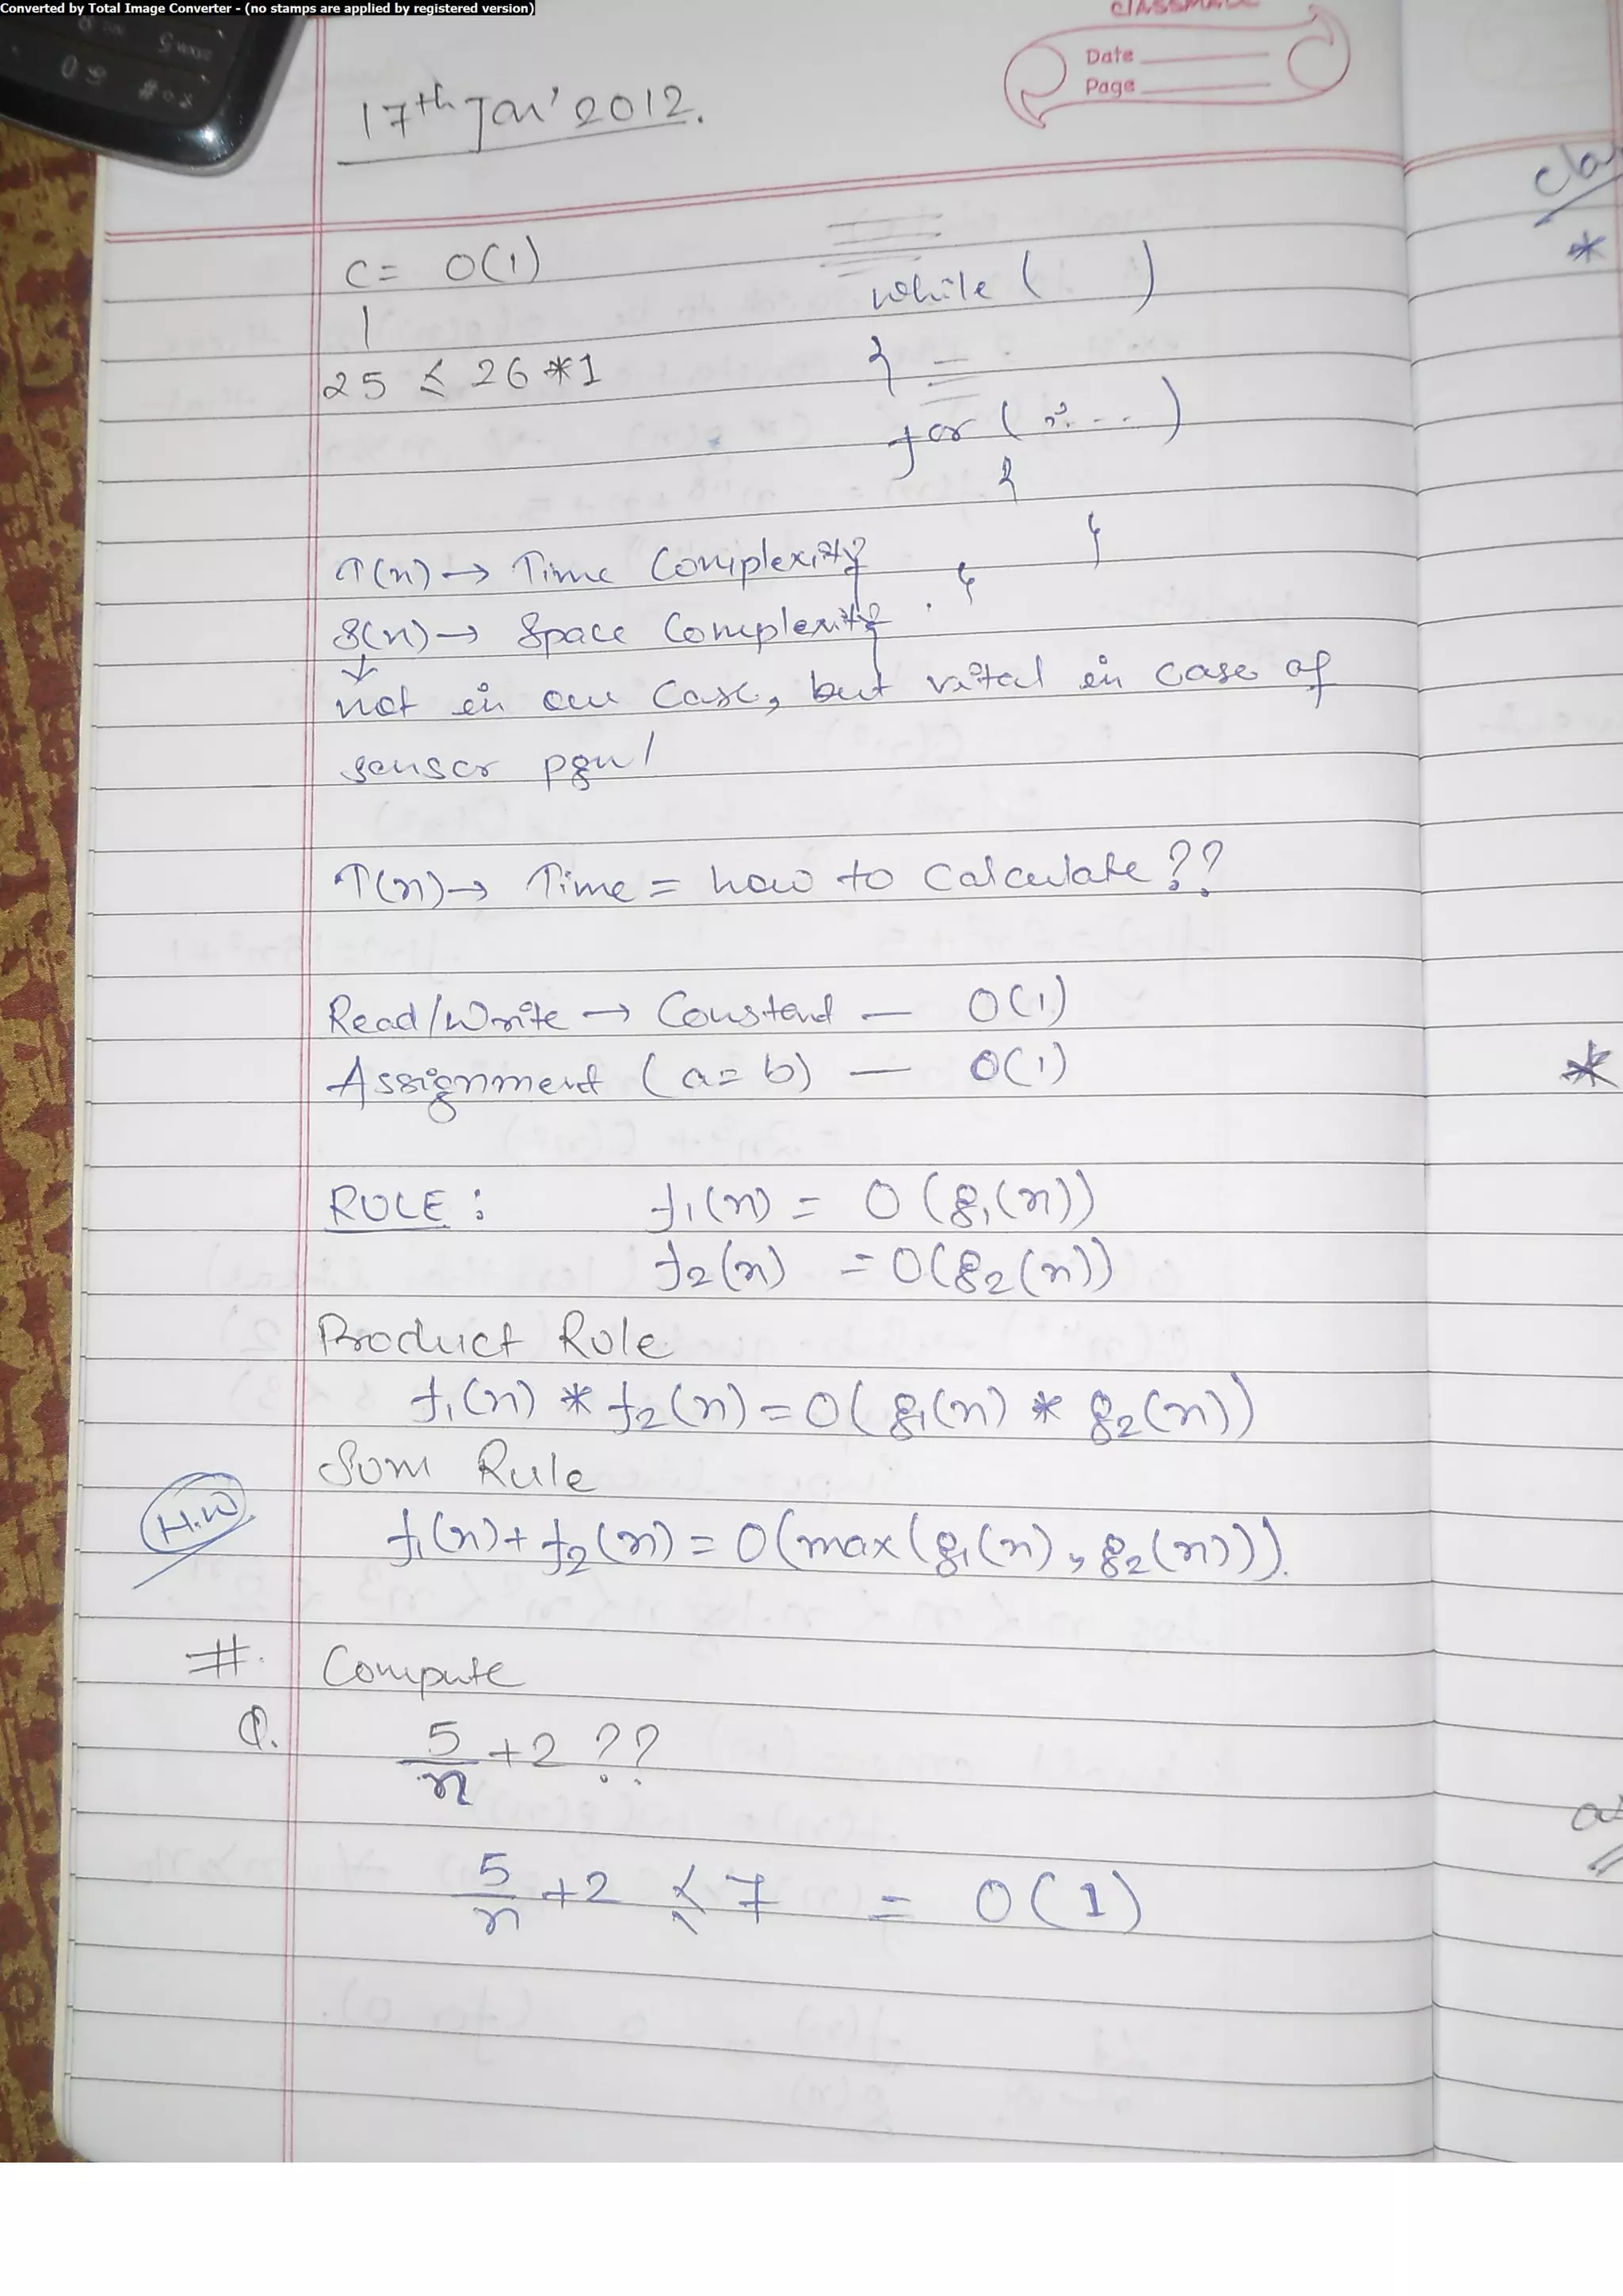 Converted by Total Image Converter - (no stamps are applied by registered version)
classmate
Date
Page
17th Jan' 2012.
C = O(1)
|
25 ≤ 26 * 1
while ( )
{
for ( ; ... )
{
}
}
T(n) → Time Complexity
S(n) → Space Complexity
↓
not in our case, but vital in case of
sensor
T(n) → Time = how to calculate ??
Read/Write → Constant — O(1)
Assignment (a = b) — O(1)
RULE : f1(n) = O(g1(n))
f2(n) = O(g2(n))
Product Rule
f1(n) * f2(n) = O(g1(n) * g2(n))
Sum Rule
H.W
f1(n) + f2(n) = O(max(g1(n), g2(n))).
#. Compute
Q. 5/n + 2 ??
5/n + 2 ≤ 7 = O(1)
*
*